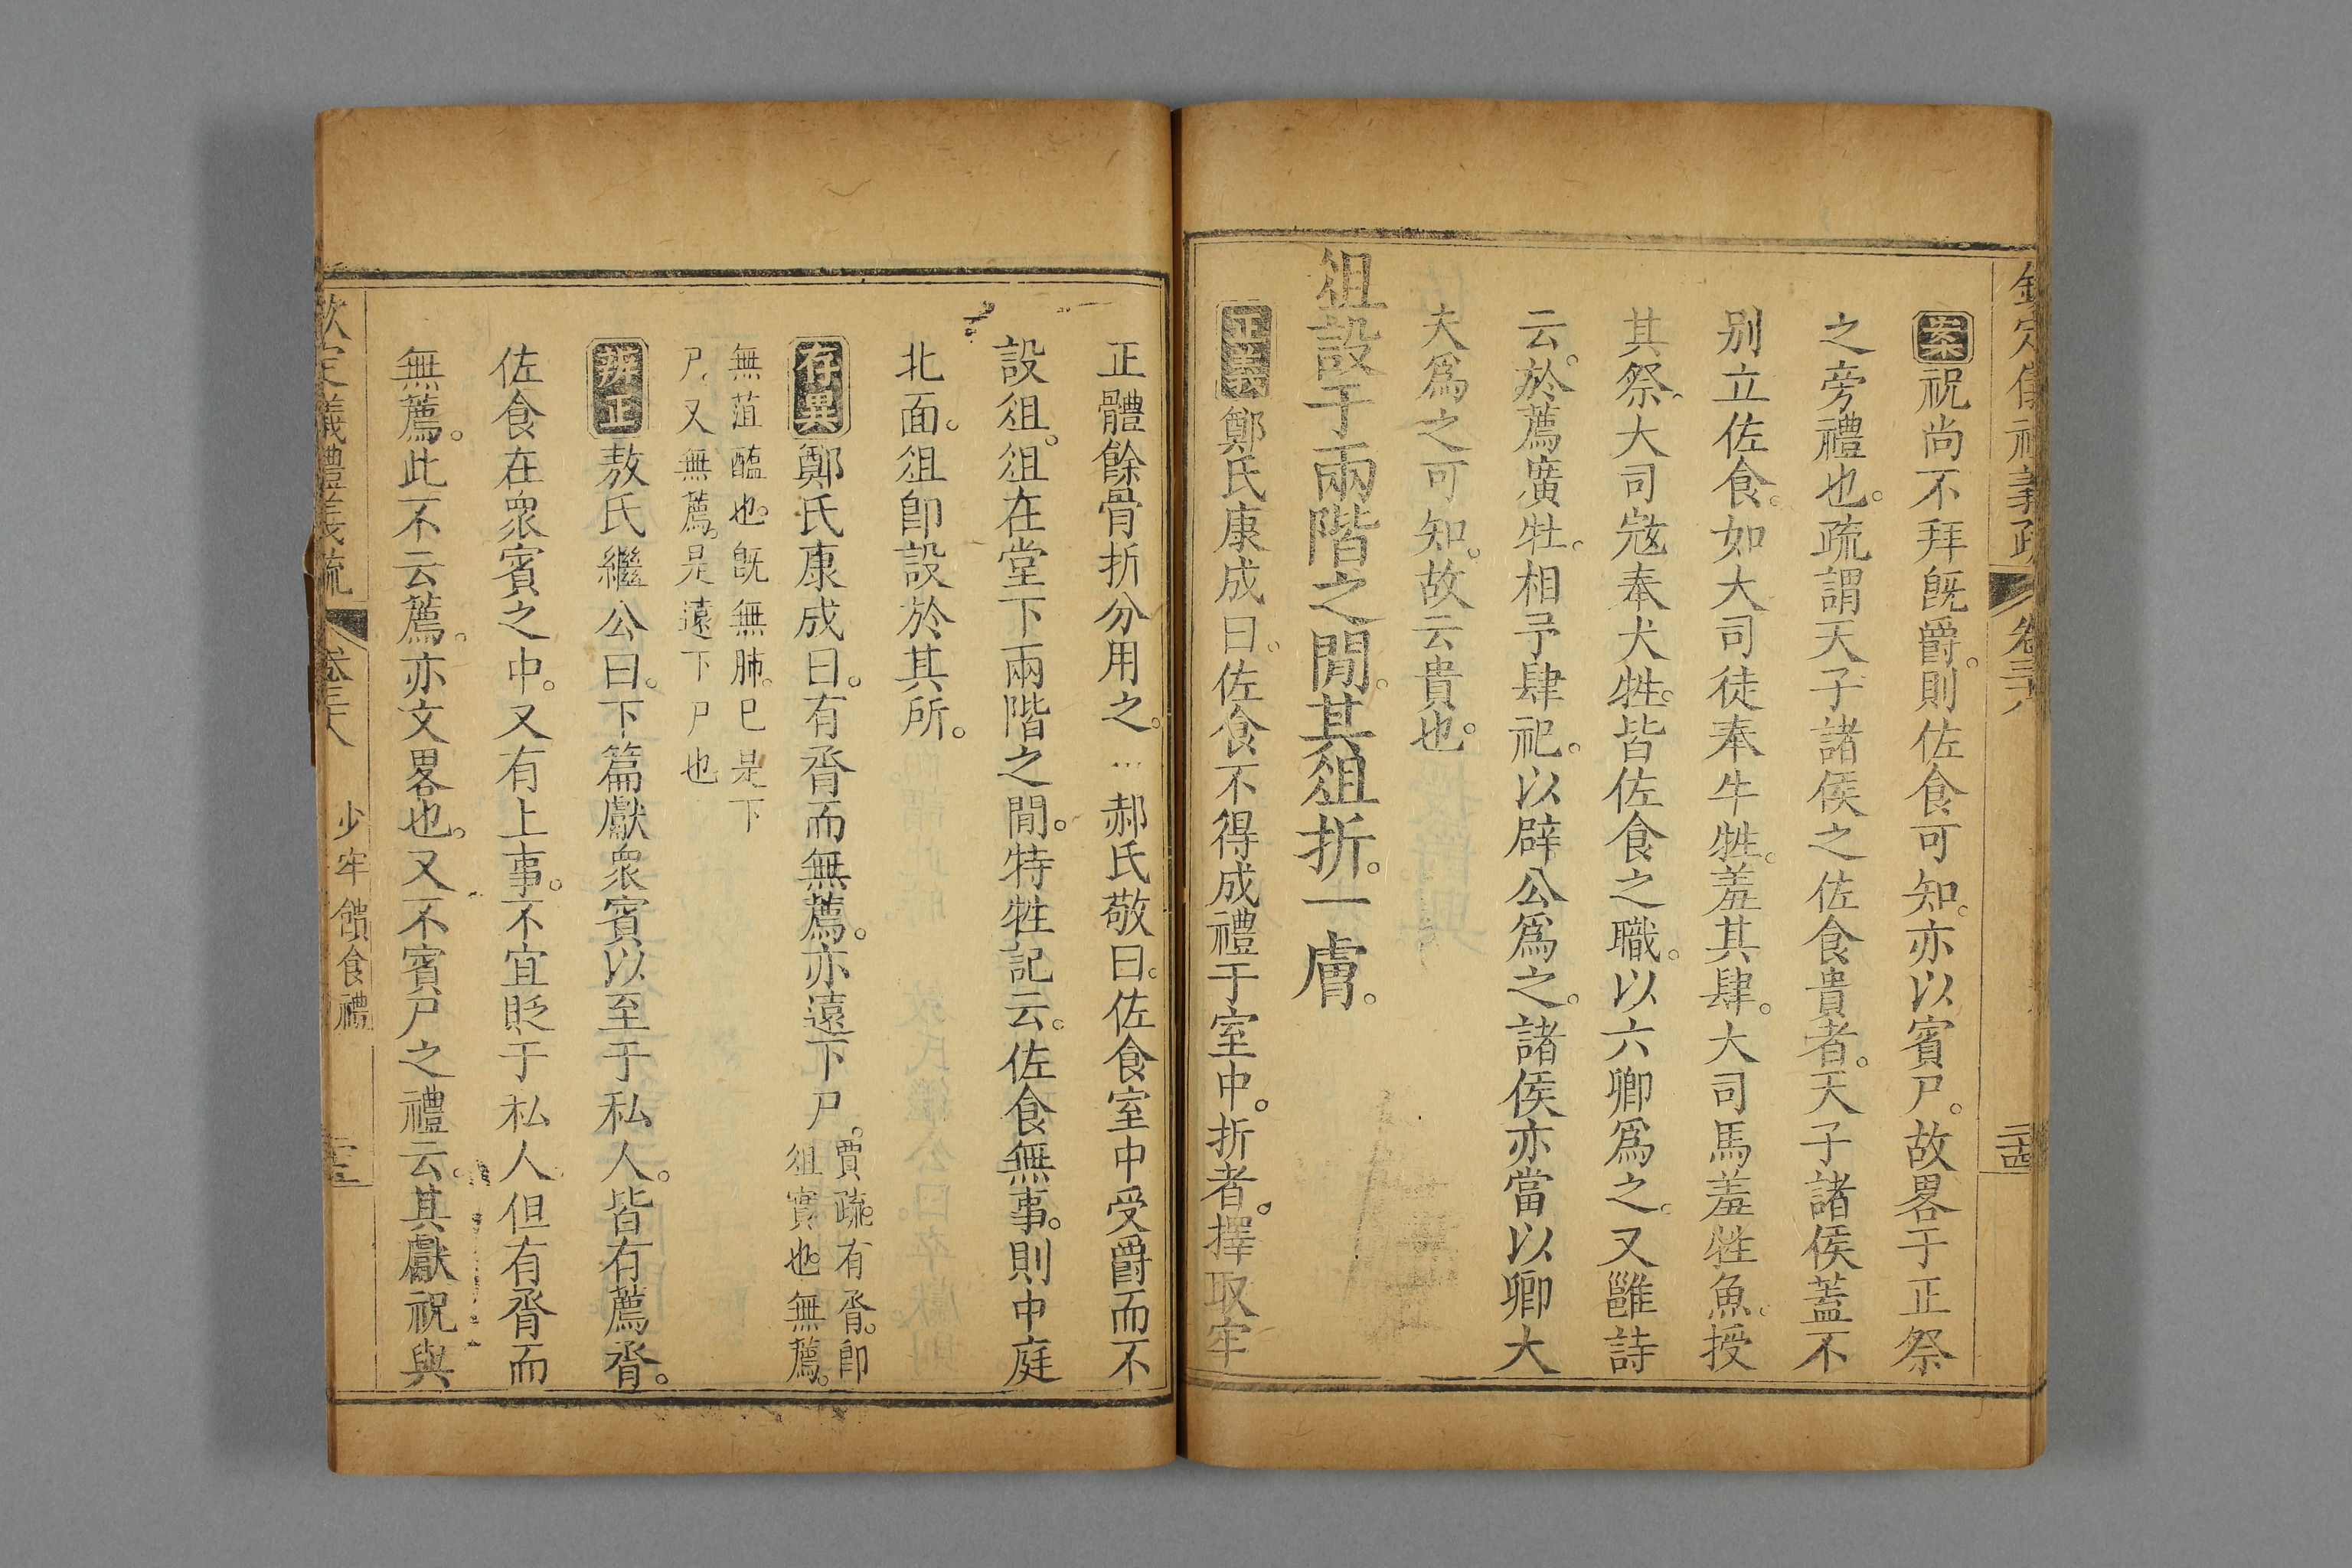 欽定儀禮義疏 卷三十八 二十四
案祝尚不拜旣爵。則佐食可知。亦以賓尸。故畧于正祭
之旁禮也。疏謂天子諸侯之佐食貴者。天子諸侯蓋不
别立佐食。如大司徒奉牛牲。羞其肆。大司馬羞牲魚。授
其祭。大司寇奉犬牲。皆佐食之職。以六卿爲之。又雝詩
云。於薦廣牡。相予肆祀。以辟公爲之。諸侯亦當以卿大
夫爲之可知。故云貴也。
俎設于兩階之閒。其俎折。一膚。
正義鄭氏康成曰。佐食不得成禮于室中。折者。擇取牢
正體餘骨折分用之。 郝氏敬曰。佐食室中受爵而不
設俎。俎在堂下兩階之閒。特牲記云。佐食無事。則中庭
北面。俎卽設於其所。
存異鄭氏康成曰。有脀而無薦。亦遠下尸。賈疏。有脀。卽
俎實也。無薦。
無菹醢也。旣無肺。已是下
尸。又無薦。是遠下尸也
辨正敖氏繼公曰。下篇獻衆賓以至于私人。皆有薦脀。
佐食在衆賓之中。又有上事。不宜貶于私人但有脀而
無薦。此不云薦。亦文畧也。又不賓尸之禮云。其獻祝與
欽定儀禮義疏 卷三十八 少牢饋食禮